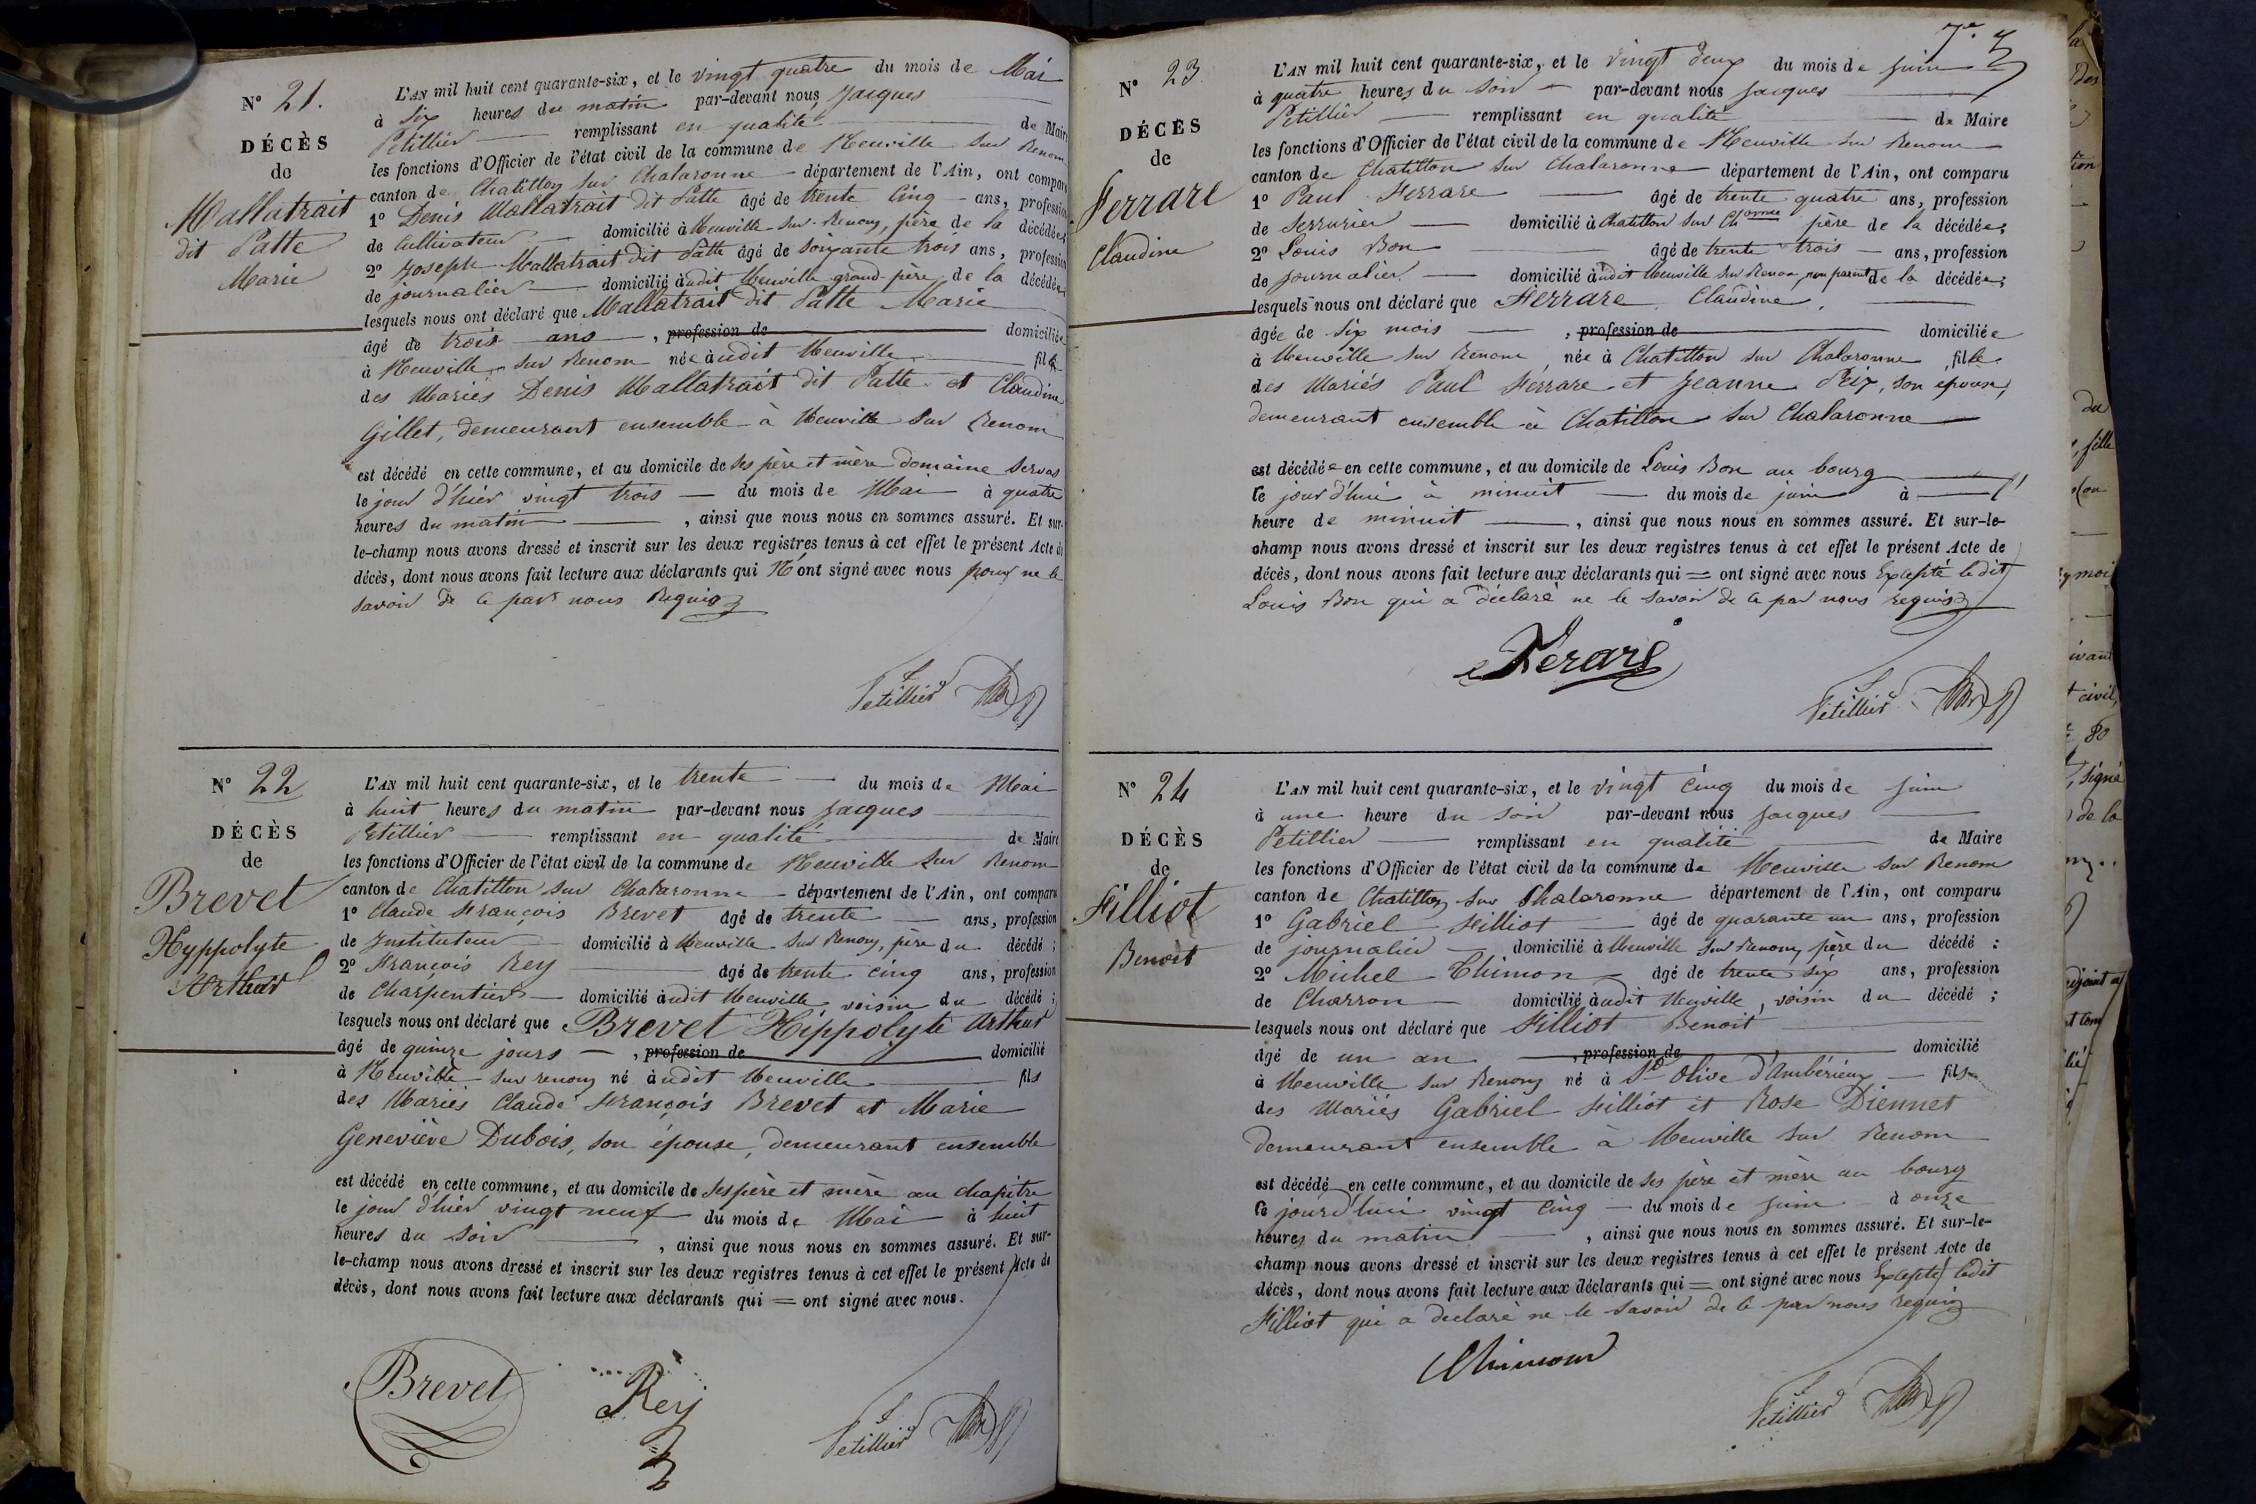 N° 21.
DÉCÈS
de
Mallatrait
dit Patte
Marie
L'AN mil huit cent quarante-six, et le vingt quatre du mois de Mai
à six heures du matin par-devant nous Jacques
Petillier remplissant en qualité de Maire
les fonctions d'Officier de l'état civil de la commune de Neuville sur Renom
canton de Chatillon sur Chalaronne département de l'Ain, ont comparu
1° Denis Mallatrait dit Patte âgé de trente cinq ans, profession
de Cultivateur domicilié à Neuville-sur-Renom, père de la décédée;
2° Joseph Mallatrait dit Patte âgé de soixante trois ans, profession
de journalier domicilié àudit Neuville grand-père de la décédée;
lesquels nous ont déclaré que Mallatrait dit Patte Marie
âgé de trois ans, profession de domiciliée
à Neuville sur Renom née àudit Neuville fille
des Mariés Denis Mallatrait dit Patte et Claudine
Gillet, demeurant ensemble à Neuville sur Renom
est décédé en cette commune, et au domicile de ses père et mère domaine Servas
le jour d'hier vingt trois du mois de Mai à quatre
heures du matin, ainsi que nous nous en sommes assuré. Et sur-
le-champ nous avons dressé et inscrit sur les deux registres tenus à cet effet le présent Acte de
décès, dont nous avons fait lecture aux déclarants qui N'ont signé avec nous pour ne le
savoir de ce par nous Requis
Petillier
N° 22
DÉCÈS
de
Brevet
Hyppolyte
Arthur
L'AN mil huit cent quarante-six, et le trente du mois de Mai
à huit heures du matin par-devant nous Jacques
Petillier remplissant en qualité de Maire
les fonctions d'Officier de l'état civil de la commune de Neuville sur Renom
canton de Chatillon sur Chalaronne département de l'Ain, ont comparu
1° Claude François Brevet âgé de trente ans, profession
de Instituteur domicilié à Neuville sur Renom, père du décédé;
2° François Rey âgé de trente cinq ans, profession
de Charpentier domicilié àudit Neuville voisin du décédé;
lesquels nous ont déclaré que Brevet Hippolyte Arthur
âgé de quinze jours, profession de domicilié
à Neuville sur renom né àudit Neuville fils
des Mariés Claude François Brevet et Marie
Geneviève Dubois, son épouse, demeurant ensemble
est décédé en cette commune, et au domicile de ses père et mère au chapitre
le jour d'hier vingt neuf du mois de Mai à huit
heures du soir, ainsi que nous nous en sommes assuré. Et sur-
le-champ nous avons dressé et inscrit sur les deux registres tenus à cet effet le présent Acte de
décès, dont nous avons fait lecture aux déclarants qui = ont signé avec nous.
Brevet Rey Petillier
N° 23
DÉCÈS
de
Ferrare
Claudine
L'AN mil huit cent quarante-six, et le vingt deux du mois de juin
à quatre heures du soir par-devant nous Jacques
Petillier remplissant en qualité de Maire
les fonctions d'Officier de l'état civil de la commune de Neuville sur Renom
canton de Chatillon sur Chalaronne département de l'Ain, ont comparu
1° Paul Ferrare âgé de trente quatre ans, profession
de Serrurier domicilié à Chatillon sur Chonne père de la décédée;
2° Louis Bon âgé de trente trois ans, profession
de journalier domicilié àudit Neuville sur Renom, non parent de la décédée;
lesquels nous ont déclaré que Ferrare Claudine,
âgée de six mois, profession de domiciliée
à Neuville sur Renom née à Chatillon sur Chalaronne, fille
des Mariés Paul Ferrare et Jeanne Prix, son épouse,
demeurant ensemble à Chatillon sur Chalaronne
est décédée en cette commune, et au domicile de Louis Bon au bourg
le jour d'hui à minuit du mois de juin à l'
heure de minuit, ainsi que nous nous en sommes assuré. Et sur-le-
champ nous avons dressé et inscrit sur les deux registres tenus à cet effet le présent Acte de
décès, dont nous avons fait lecture aux déclarants qui = ont signé avec nous Excepté ledit
Louis Bon qui a déclaré ne le savoir de ce par nous requis
Ferare
Petillier
N° 24
DÉCÈS
de
Filliot
Benoit
L'AN mil huit cent quarante-six, et le vingt cinq du mois de juin
à une heure du soir par-devant nous Jacques
Petillier remplissant en qualité de Maire
les fonctions d'Officier de l'état civil de la commune de Neuville sur Renom
canton de Chatillon sur Chalaronne département de l'Ain, ont comparu
1° Gabriel Filliot âgé de quarante un ans, profession
de journalier domicilié à Neuville sur Renom, père du décédé :
2° Michel Thimon âgé de trente six ans, profession
de Charron domicilié àudit Neuville, voisin du décédé ;
lesquels nous ont déclaré que Filliot Benoit
âgé de un an, profession de domicilié
à Neuville sur Renom né à Ste Olive d'Ambérieux fils
des Mariés Gabriel Filliot et Rose Diennet
demeurant ensemble à Neuville sur Renom
est décédé en cette commune, et au domicile de ses père et mère au bourg
le jourd'hui vingt cinq du mois de juin à onze
heures du matin, ainsi que nous nous en sommes assuré. Et sur-le-
champ nous avons dressé et inscrit sur les deux registres tenus à cet effet le présent Acte de
décès, dont nous avons fait lecture aux déclarants qui = ont signé avec nous Excepté ledit
Filliot qui a declaré ne le savoir de ce par nous requis
Thimon
Petillier